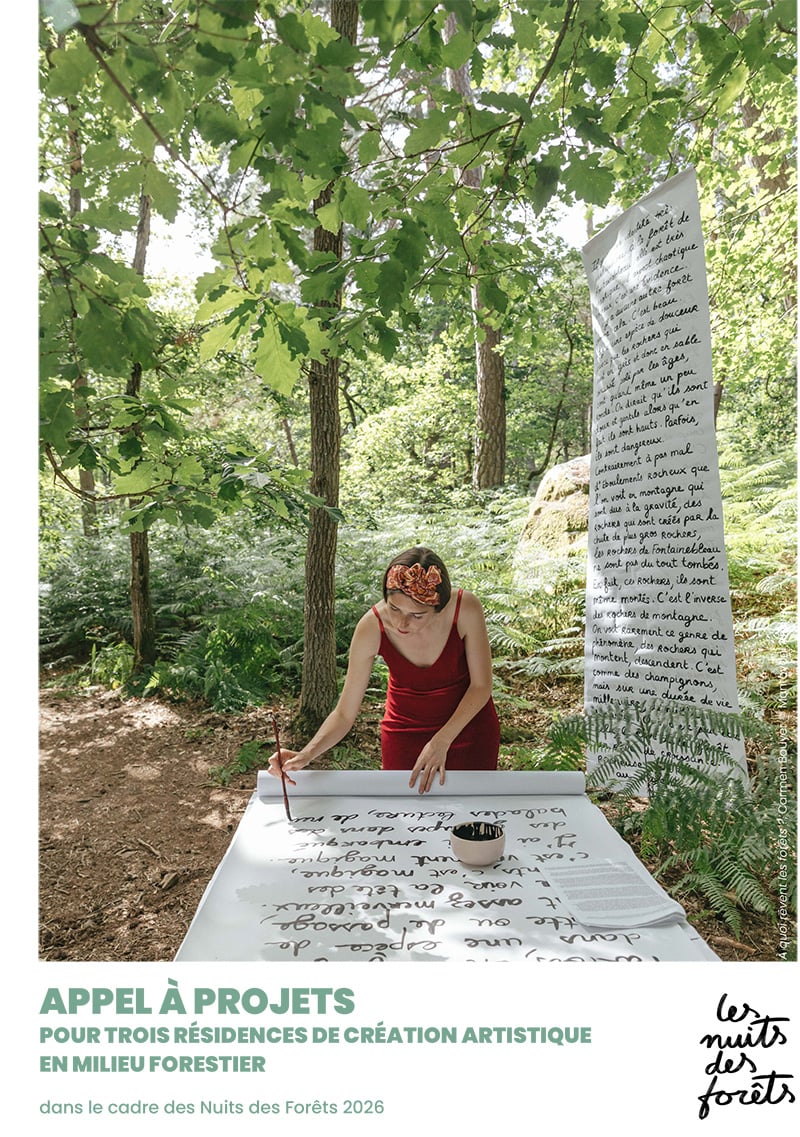 forêt de
elle est très
chaotique
évidence.
aucune autre forêt
cela. C'est beau
une espèce de douceur
que les rochers qui
et donc en sable
poli par les âges,
quand même un peu
ronds. On dirait qu'ils sont
doux et gentils alors qu'en
fait ils sont hauts. Parfois,
ils sont dangereux.
Contrairement à pas mal
d'éboulements rocheux que
l'on voit en montagne qui
sont dus à la gravité, des
rochers qui sont créés par la
chute de plus gros rochers,
les rochers de Fontainebleau
ne sont pas du tout tombés.
En fait, ces rochers, ils sont
même montés. C'est l'inverse
des rochers de montagne.
On voit rarement ce genre de
phénomène, des rochers qui
montent, descendent. C'est
comme des champignons,
mais sur une durée de vie
de croissance
rocheuse
au
parfois, une espèce de
dans une
ou de passage,
assez merveilleux.
voir la tête des
c'est magique,
c'est vraiment magique.
embarqué
dans des
balades lecture, de
À quoi rêvent les forêts ? Carmen
APPEL À PROJETS
POUR TROIS RÉSIDENCES DE CRÉATION ARTISTIQUE
EN MILIEU FORESTIER
dans le cadre des Nuits des Forêts 2026
les
nuits
des
forêts